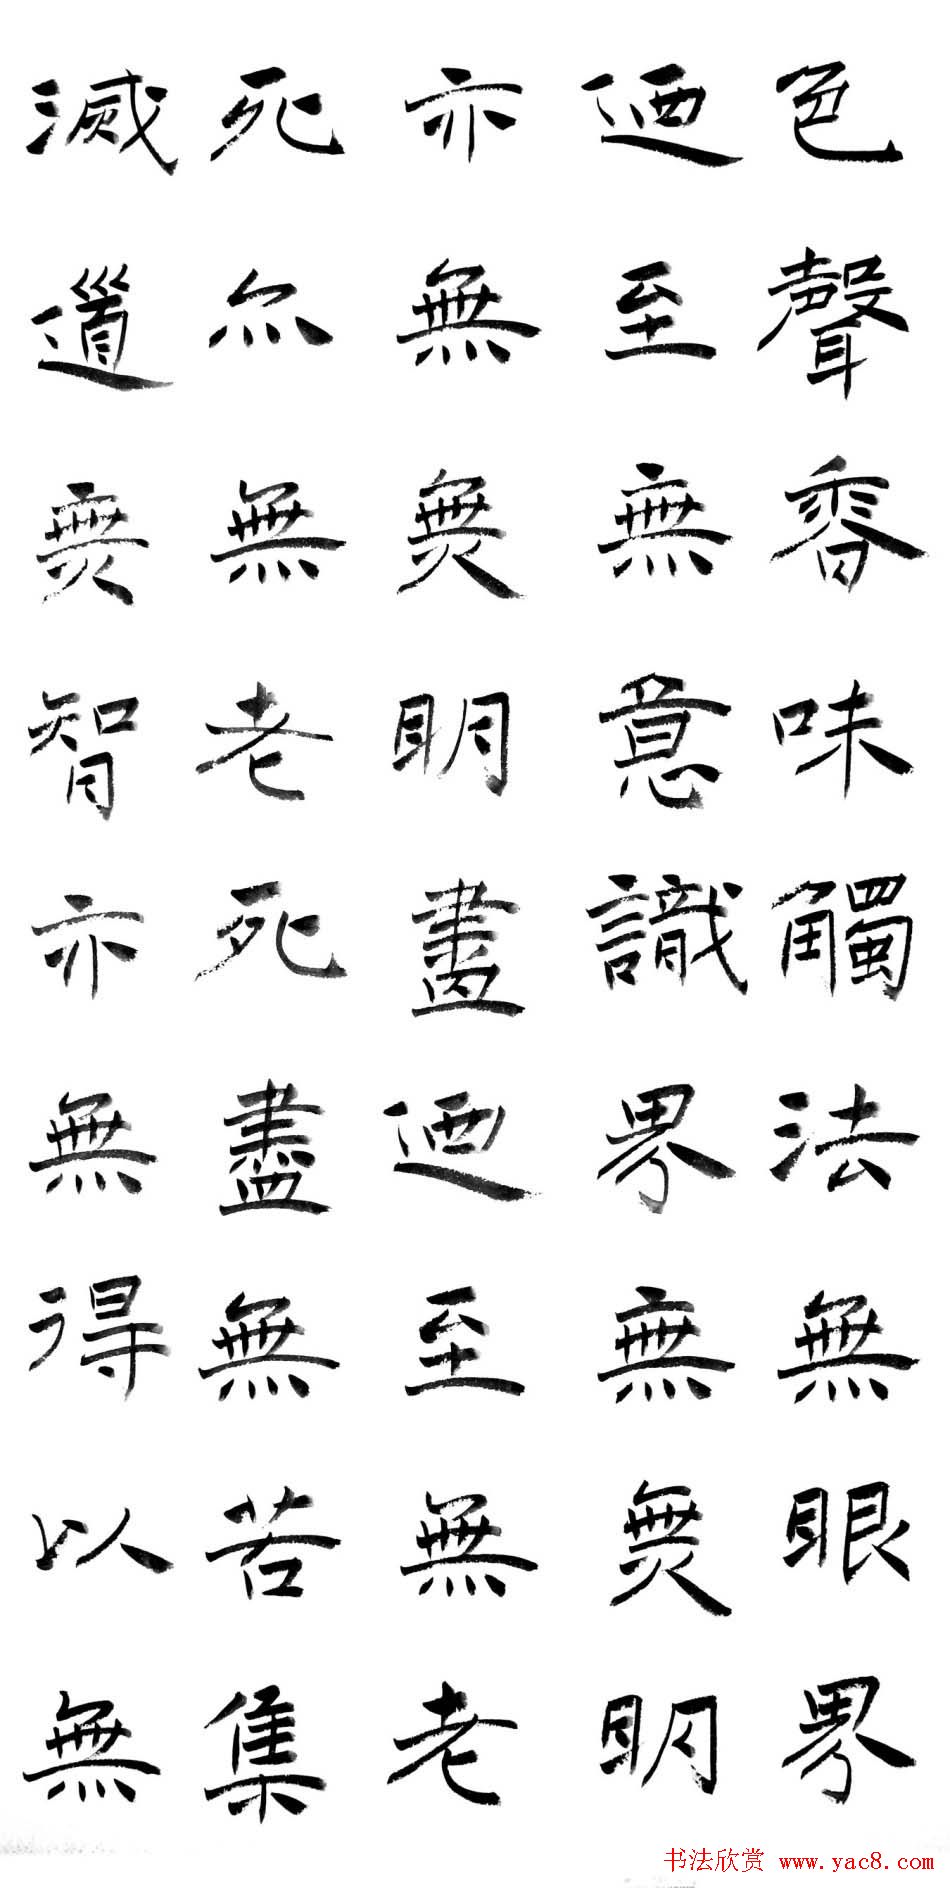 色聲香味觸法無眼界
迺至無意識界無無明
亦無無明盡迺至無老
死亦無老死盡無苦集
滅道無智亦無得以無
书法欣赏 www.yac8.com